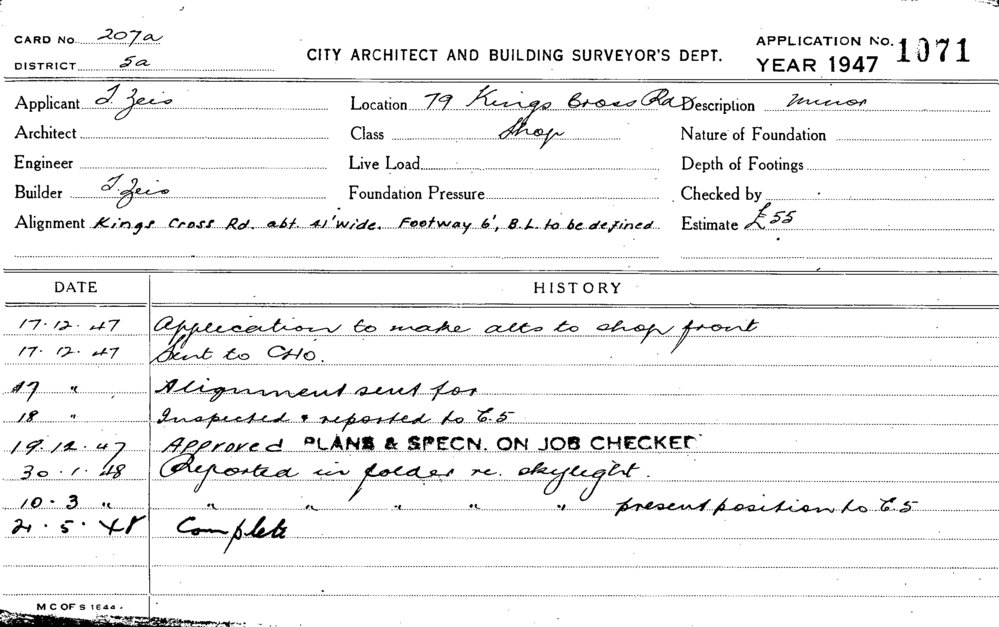 CARD No. 207a
DISTRICT 5a
CITY ARCHITECT AND BUILDING SURVEYOR'S DEPT.
APPLICATION No. 1071
YEAR 1947
Applicant T. Zeis Location 79 Kings Cross Rd Description Minor
Architect Class Shop Nature of Foundation
Engineer Live Load Depth of Footings
Builder T. Zeis Foundation Pressure Checked by
Alignment Kings Cross Rd. abt. 41' wide. Footway 6', B.L. to be defined Estimate £55
DATE HISTORY
17.12.47 Application to make alts to shop front
17.12.47 Sent to CHO.
17 " Alignment sent for
18 " Inspected & reported to C.5
19.12.47 Approved PLANS & SPECN. ON JOB CHECKED
30.1.48 Reported in folder re. skylight.
10.3 " " " " " " present position to C.5
21.5.48 Complete
M C OF S 1644.